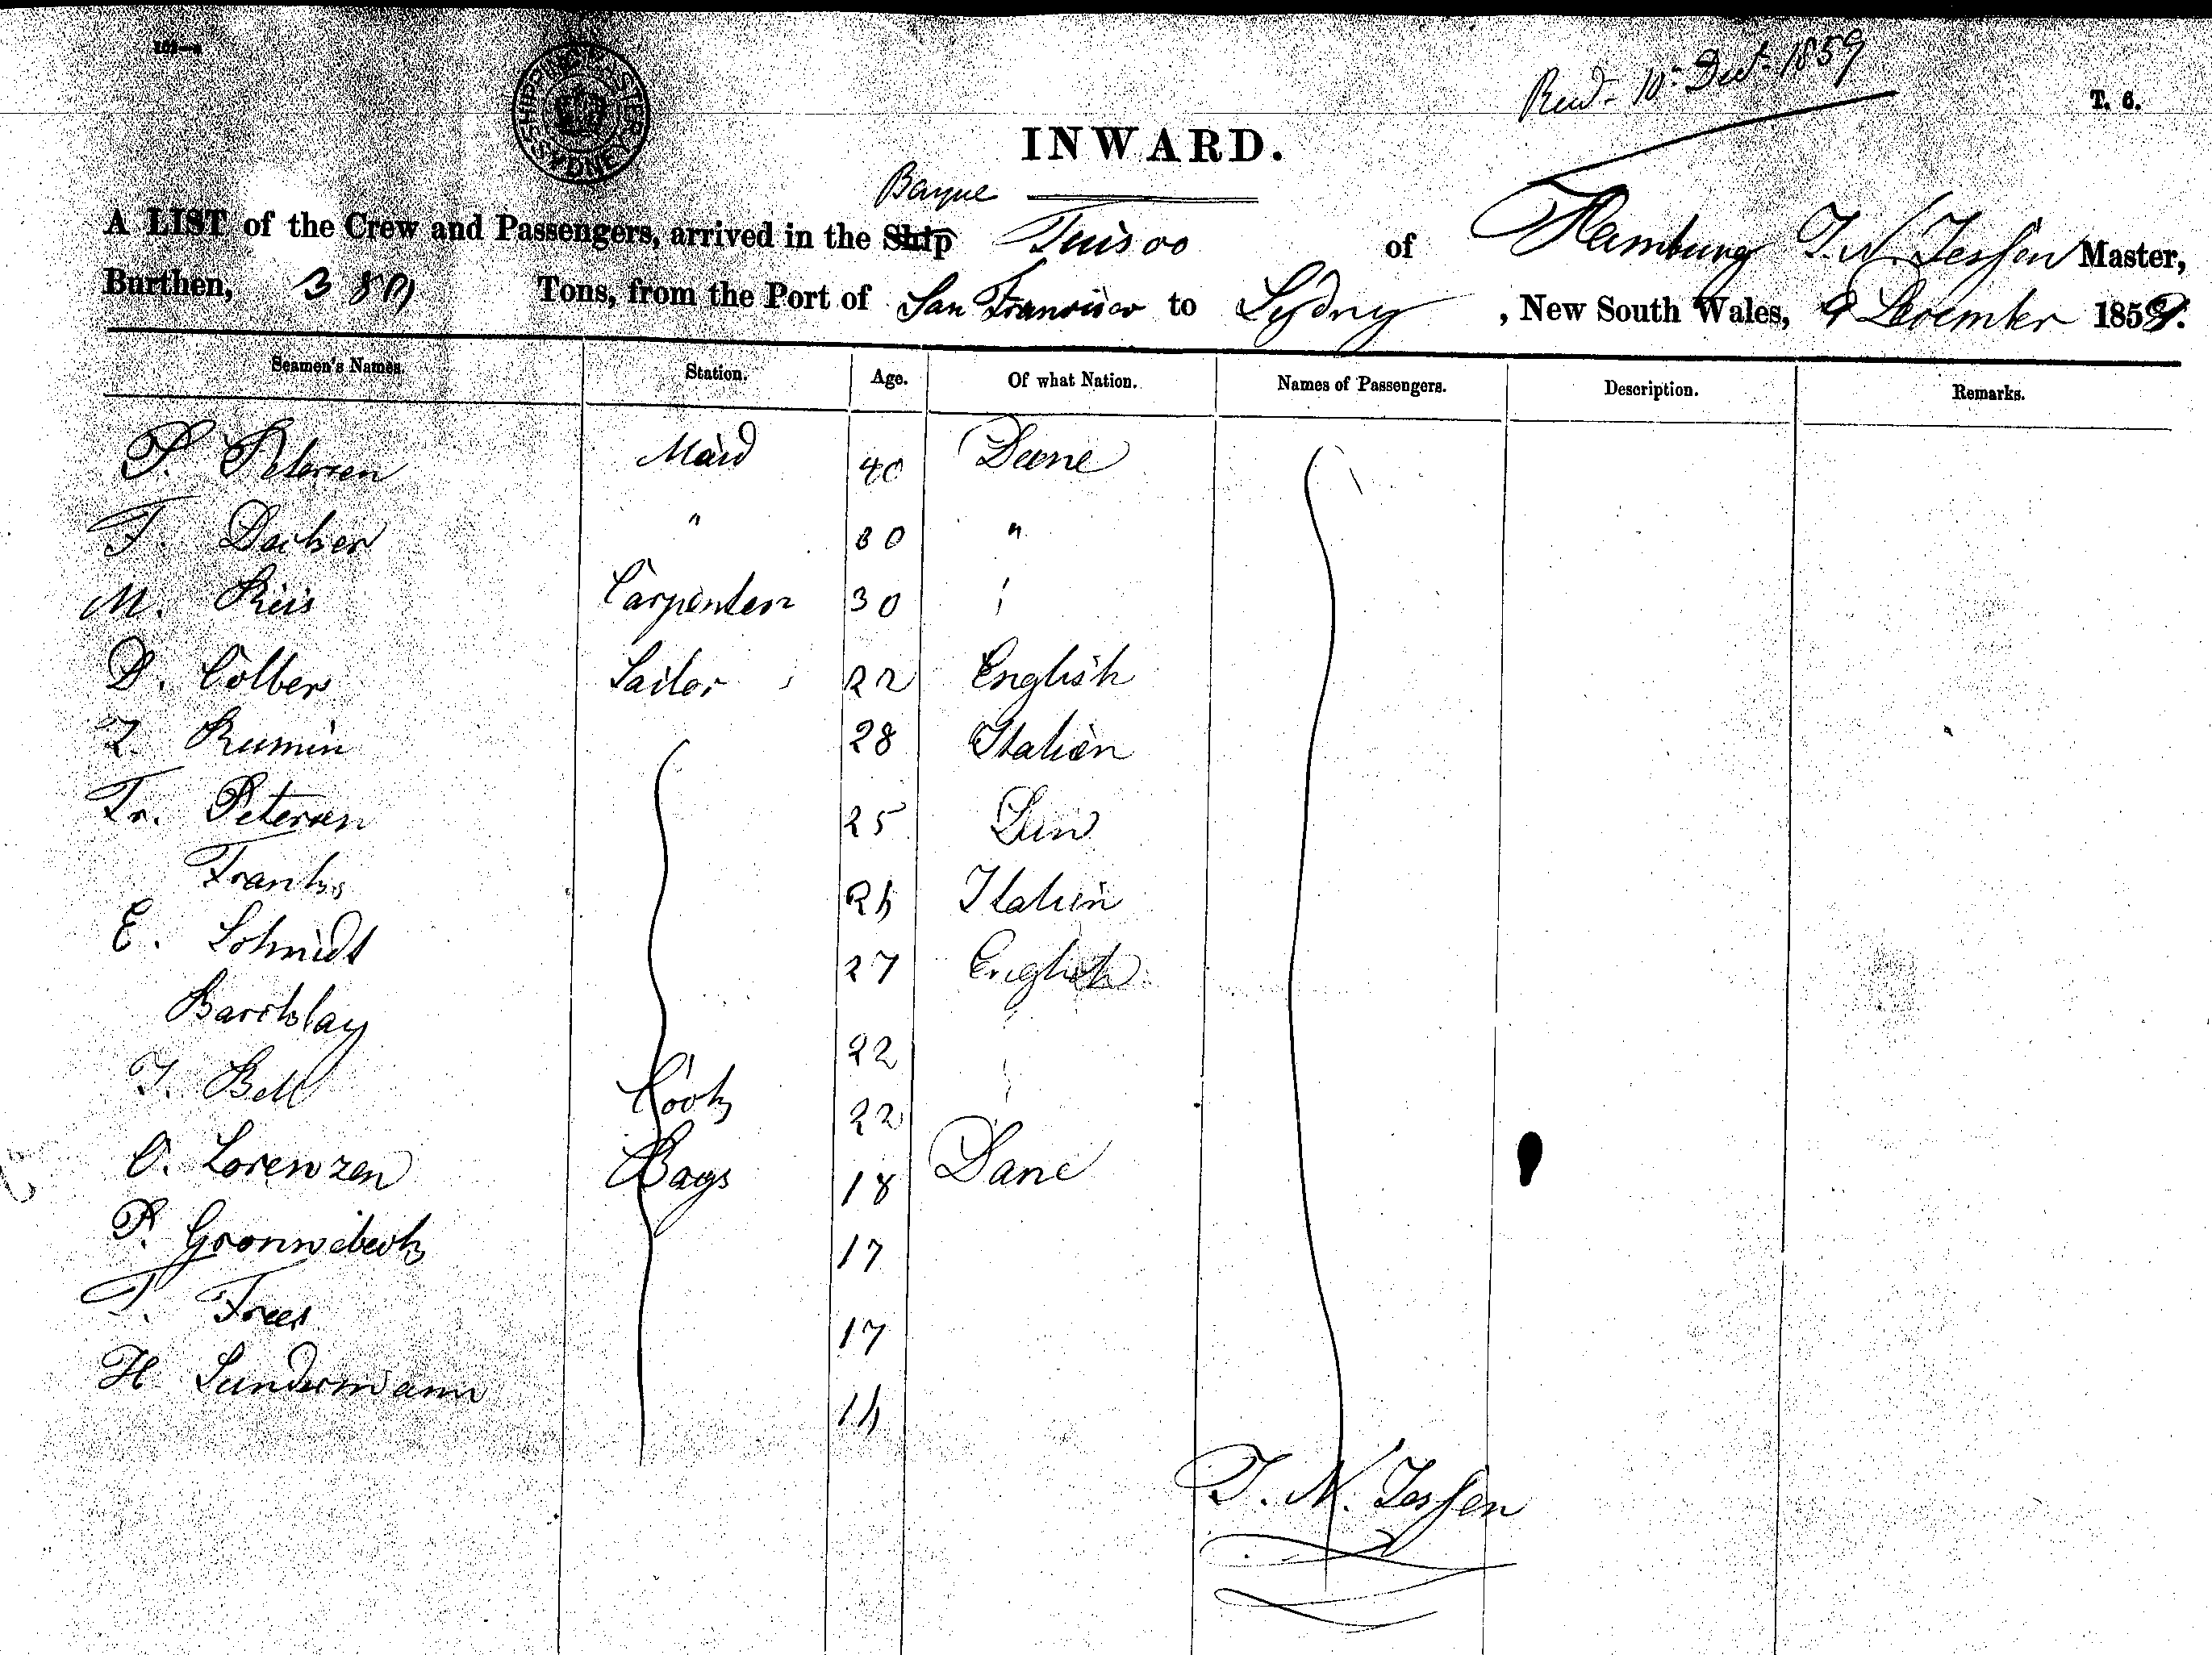 Recd. 10th Dect. 1859
T. 6.
SHIPPING MASTER SYDNEY
INWARD.
Barque
A LIST of the Crew and Passengers, arrived in the Ship Tuisco of Hamburg T. N. Jessen Master,
Burthen, 380 Tons, from the Port of San Francisco to Sydney, New South Wales, 9 December 1859.
Seamen's Names. Station. Age. Of what Nation. Names of Passengers. Description. Remarks.
P. Petersen 40
T. " 30 "
M. Carpenter 30
D. Colbers Sailor 22 English
Rumin 28 Italien
Fr. Petersen 25
Franks Italien
E. Schmidt 27 English
Barcklay 22
Bell Cook 22
C. Lorenzen Boys 18 Dane
P. 17
T. Frees 17
H Sundermann
T. N. Jessen